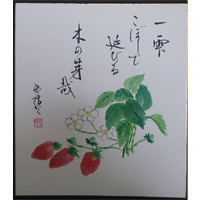 一雫
こぼして
延びる
木の芽哉